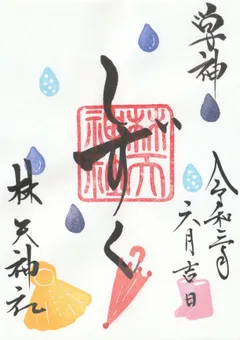 学神
しずく
令和三年
六月吉日
林天神社